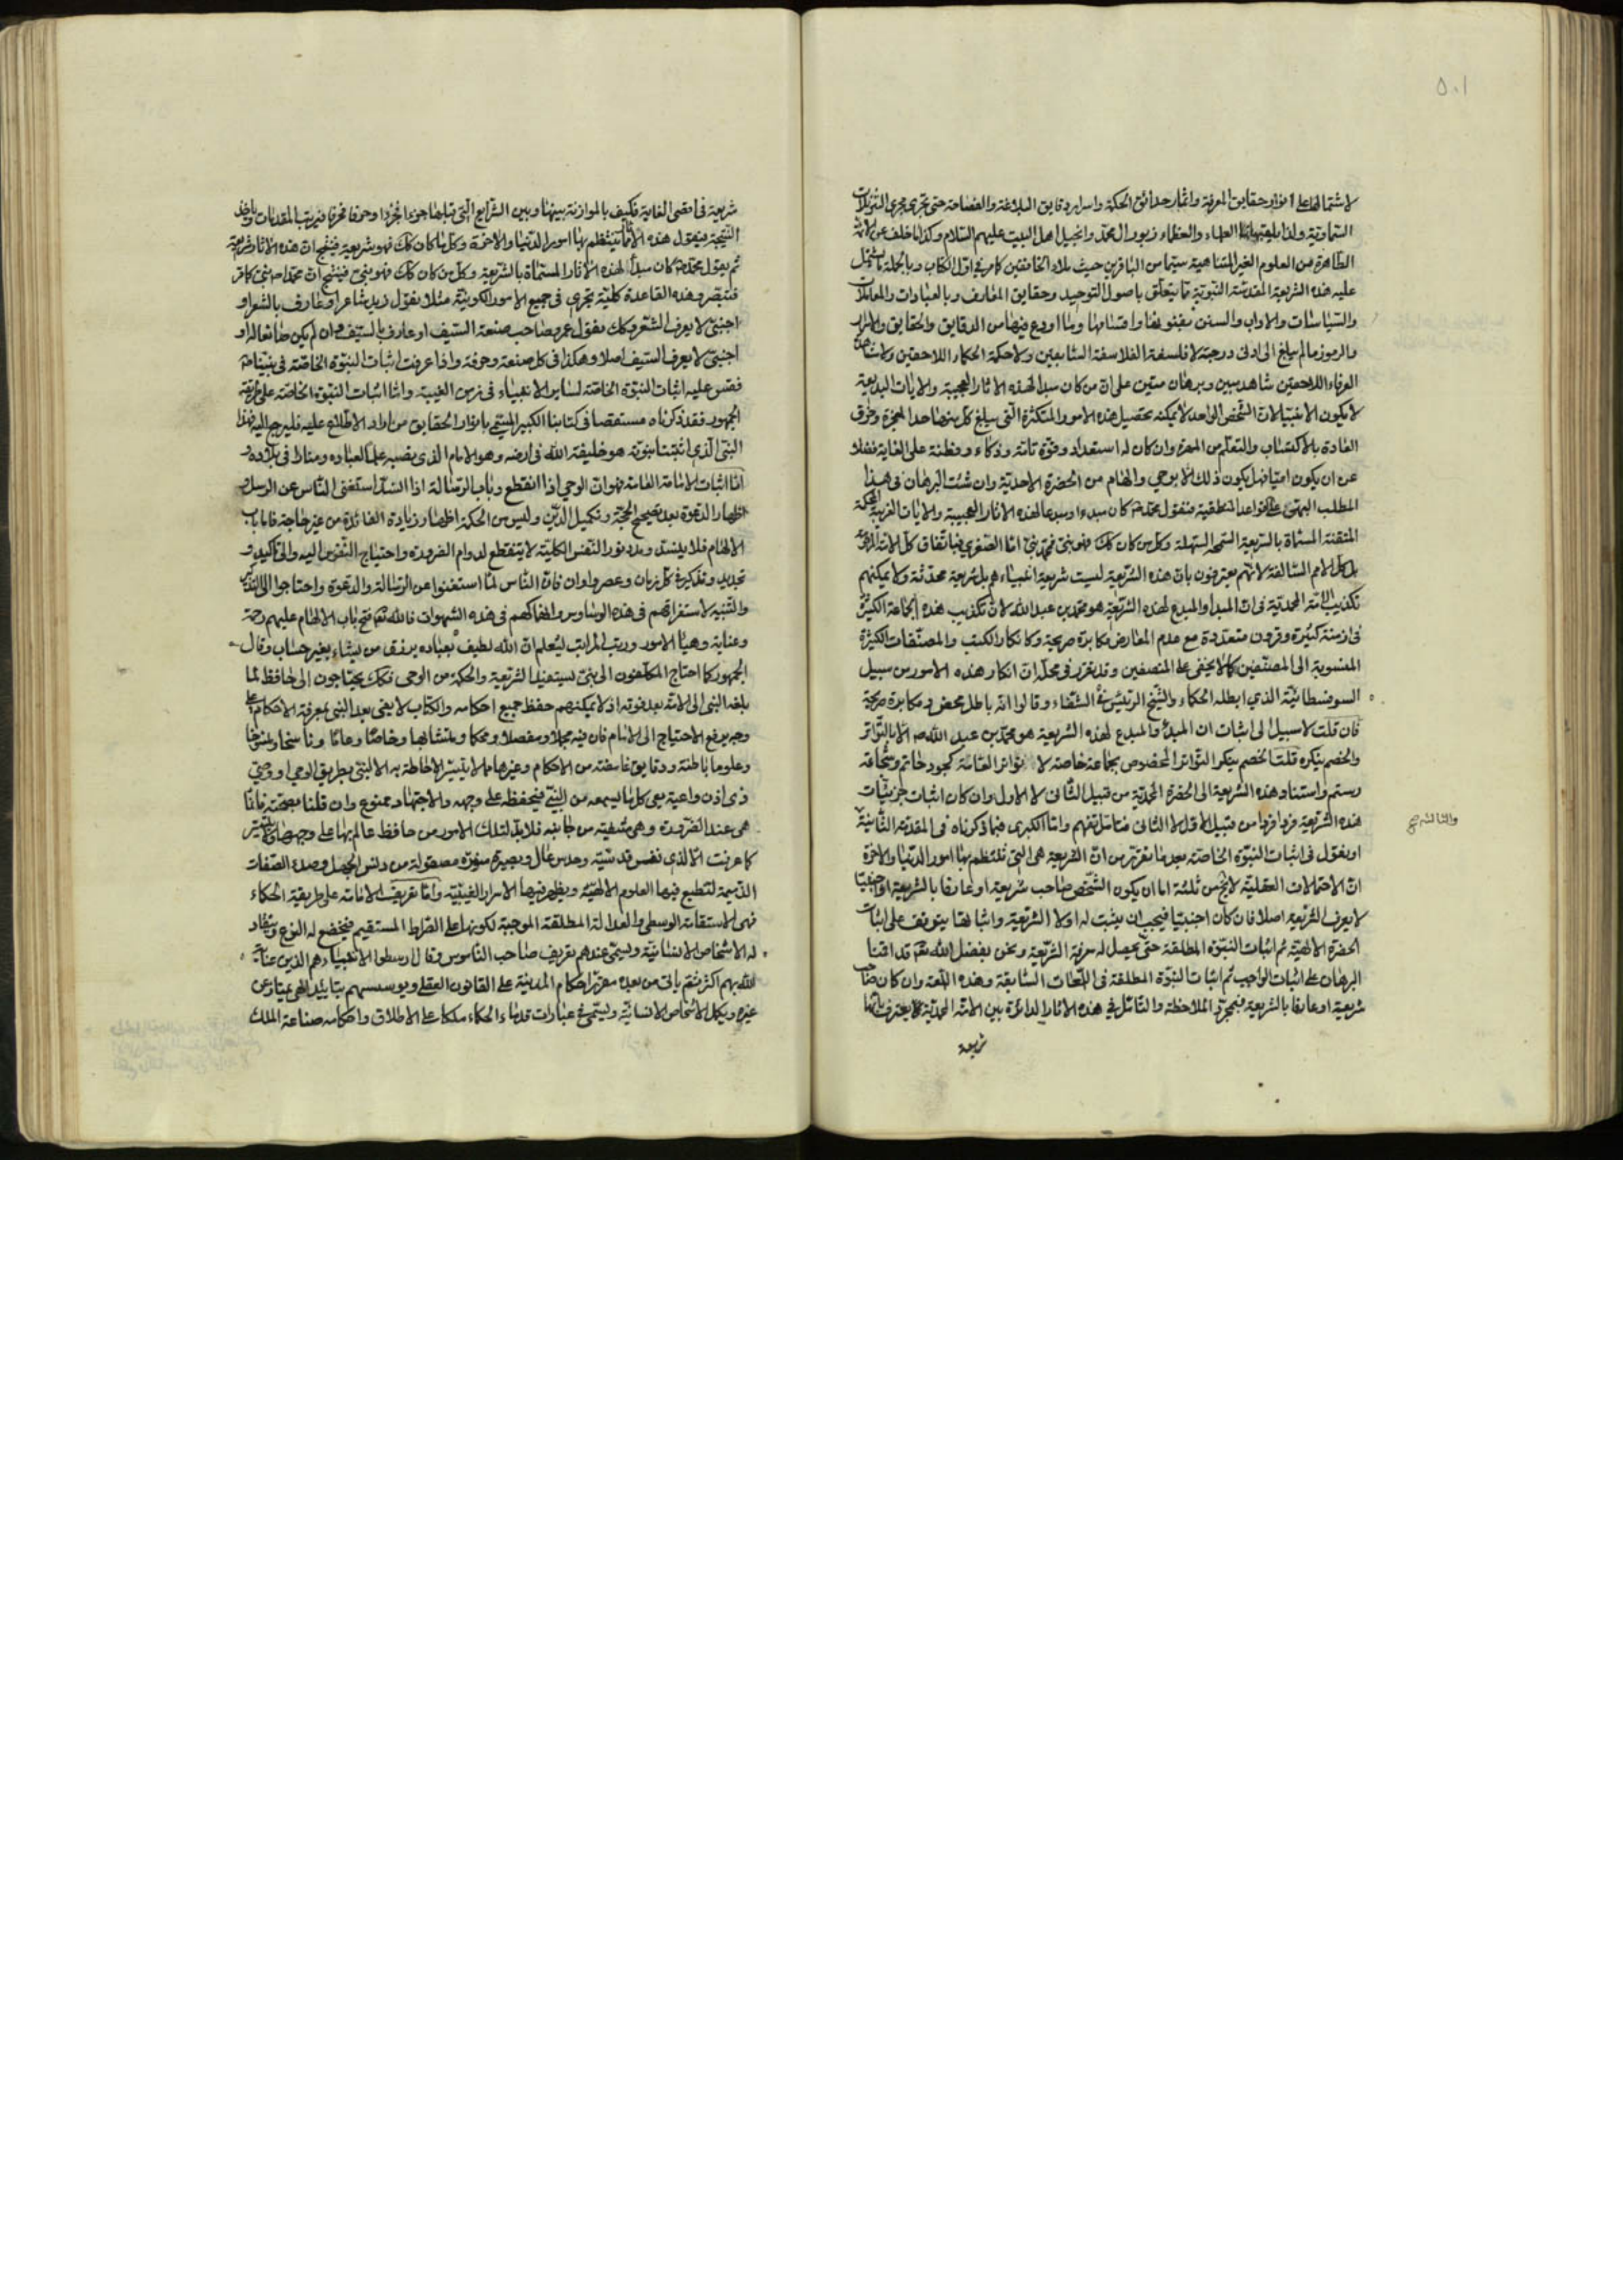 ٥٠١
لاشتمالها على انوار حقايق المعرفة واثمار حدائق الحكمة واسرار دقايق البلاغة والفصاحة حتى تجرى مجرى التنزيلات
السماوية ولذا العلماء والعظماء زبور ال محمد وانجيل اهل البيت عليهم السلام وكذا ما خلف عن الائمة
الطاهرة من العلوم الغير المتناهية سيما من الباقرين حيث ملاء الخافقين كما مر في اول الكتاب وبالجملة ما يشتمل
عليه هذه الشريعة المقدسة النبوية مما يتعلق باصول التوحيد وحقايق المعارف وبالعبادات والمعاملات
والسياسات والاداب والسنن بفنونها واقسامها وما اودع فيها من الدقايق والحقايق والاسرار
والرموز ما لم يبلغ الى ادنى درجته لا فلسفة الفلاسفة السابقين ولا حكمة الحكماء اللاحقين ولا مشاهدة
العرفاء اللاحقين شاهد مبين وبرهان متين على ان من كان مبدا لهذه الاثار العجيبة والايات البديعة
لا يكون الا نبيا لان الشخص الواحد لا يمكنه تحصيل هذه الامور المتكثرة التى يبلغ كل منها حد المعجزة وخرق
العادة بالاكتساب والتعلم من المهرة وان كان له استعداد وقوة تامة وذكاء وفطنة على الغاية فضلا
عن ان يكون اميا فهل يكون ذلك الا بوحي والهام من الحضرة الاحدية وان شئت البرهان في هذا
المطلب البهى على القواعد المنطقية فنقول محمد ص كان مبدء او مبدعا لهذه الاثار العجيبة والايات الغريبة المحكمة
المتقنة المسماة بالشريعة السمحة السهلة وكل من كان كك فهو نبى فمحمد نبى اما الصغرى فباتفاق كل الامة المرحومة
بل كل الامم السالفة لانهم يعترفون بان هذه الشريعة ليست شريعة انبياءهم بل شريعة محدثة ولا يمكنهم
تكذيب الامة المحمدية فى ان المبدأ والمبدع لهذه الشريعة هو محمد بن عبد الله لان تكذيب هذه الجماعة الكثيرة
فى ازمنة كثيرة وقرون متعددة مع عدم المعارض مكابرة صريحة وكانكار الكتب والمصنفات الكثيرة
المنسوبة الى المصنفين كما لا يخفى على المنصفين وقد تقرر فى محله ان انكار هذه الامور من سبيل
السوفسطائية الذي ابطله الحكماء والشيخ الرئيس فى الشفاء وقالوا انه باطل محض ومكابرة صريحة
فان قلت لا سبيل الى اثبات ان المبدئ والمبدع لهذه الشريعة هو محمد بن عبد الله ص الا بالتواتر
والخصم ينكره قلت الخصم ينكر التواتر المخصوص بجماعة خاصة لا تواتر العامة كجود حاتم وشجاعة
رستم واستناد هذه الشريعة الى الحضرة المحمدية من قبيل الثانى لا الاول وان كان اثبات جزئيات
هذه الشريعة فردا فردا من قبيل الاول لا الثانى فتامل تفهم واما الكبرى فبما ذكرناه فى المقدمة الثانية
والثالثة صح
او نقول فى اثبات النبوة الخاصة بعد ما تقرر من ان الشريعة هى التى تنتظم بها امور الدنيا والاخرة
ان الاحتمالات العقلية لا يخ من ثلثة اما ان يكون الشخص صاحب شريعة او عارفا بالشريعة او اجنبيا
لا يعرف الشريعة اصلا فان كان اجنبيا فيجب ان يثبت له اولا الشريعة واثباتها يتوقف على اثبات
الحضرة الالهية ثم اثبات النبوة المطلقة حتى يحصل له معرفة الشريعة ونحن بفضل الله تعالى قد اقمنا
البرهان على اثبات الواجب ثم اثبات النبوة المطلقة فى اللمعات السابقة وهذه اللمعة وان كان صاحب
شريعة او عارفا بالشريعة فبمجرد الملاحظة والتامل في هذه الاثار الدائرة بين الامة المحمدية يعترف بانها
شريعة
شريعة فى اقصى الغاية فكيف بالموازنة بينها وبين الشرايع التى قبلها جزءا فجزءا وحرفا فحرفا فيرتب المقدمات وياخذ
النتيجة فيقول هذه الاثار ينتظم بها امور الدنيا والاخرة وكل ما كان كك فهو شريعة فينتج ان هذه الاثار شريعة
ثم يقول محمد ص كان مبدأ لهذه الاثار المسماة بالشريعة وكل من كان كك فهو نبى فينتج ان محمدا ص نبى كما مر
فتبصر وهذه القاعدة كلية تجرى فى جميع الامور الكونية مثلا يقول زيد شاعر او عارف بالشعر او
اجنبى لا يعرف الشعر وكك يقول عمرو صاحب صنعة السيف او عارف بالسيف وان لم يكن صانعا له او
اجنبى لا يعرف السيف اصلا وهكذا فى كل صنعة وحرفة واذا عرفت اثبات النبوة الخاصة فى نبينا ص
فقس عليه اثبات النبوة الخاصة لساير الانبياء فى زمن الغيبة واما اثبات النبوة الخاصة على طريقة
الجمهور فقد ذكرناه مستقصا فى كتابنا الكبير المسمى بانوار الحقايق من اراد الاطلاع عليه فليرجع اليه فهذا
النبى الذى اثبتنا نبوته هو خليفة الله فى ارضه وهو الامام الذى نصبه علما لعباده ومنارا فى بلاده و
اما اثبات الامامة العامة فهو ان الوحي اذا انقطع وباب الرسالة اذا انسد استغنى الناس عن الرسل و
اظهار الدعوة بعد تصحيح الحجة وتكميل الدين وليس من الحكمة اظهار زيادة الفائدة من غير حاجة فاما باب
الالهام فلا ينسد ومدد نور النفس الكلية لا ينقطع لدوام الضرورة واحتياج النفوس اليه والى تاكيد و
تجديد وتذكير فى كل زمان وعصر واوان فان الناس لما استغنوا عن الرسالة والدعوة واحتاجوا الى التذكير
والتنبيه لاستغراقهم فى هذه الوساوس وانهماكهم فى هذه الشهوات فالله تعالى فتح باب الالهام عليهم رحمة
وعناية وهيأ الامور ورتب المراتب ليعلم ان الله لطيف بعباده يرزق من يشاء بغير حساب وقال
الجمهور كما احتاج المكلفون الى نبى يستفيد الشريعة والحكمة من الوحى فكك يحتاجون الى حافظ لما
بلغه النبى الى الامة بعد فوته اذ لا يمكنهم حفظ جميع احكامه والكتاب لا يفى بعد النبى بمعرفة الاحكام على
وجه يرفع الاحتياج الى الامام فان فيه مجملا ومفصلا ومحكما ومتشابها وخاصا وعاما وناسخا ومنسوخا
وعلوما باطنة ودقايق غامضة من الاحكام وغيرها مما لا يتيسر الاحاطة به الا لنبى بطريق الوحي او وصي
ذى اذن واعية يعى كل ما يسمعه من النبى فيحفظه على وجهه والاجتهاد ممنوع وان قلنا بصحته فانما
هى عند الضرورة وهى منفية من جانبه فلا بد لتلك الامور من حافظ عالم بها على وجهها
كما عرفت الا لذى نفس قدسية وحدس عال وبصيرة منورة مصقولة من دنس الجهل وصدء الصفات
الذميمة لتنطبع فيها العلوم الالهية ويظهر فيها الاسرار الغيبية واما تعريف الامامة على طريقة الحكماء
فهى الاستقامة الوسطى والعدالة المطلقة الموجبة لكونها على الصراط المستقيم فيخضع له النوع وينقاد
له الاشخاص الانسانية ويسمى عندهم بتعريف صاحب الناموس وقال ارسطو الانبياء هم الذين عناية
الله بهم اكثر فثم ياتى من بعده معززا حكام المدينة على القانون العقلى ويوسسهم بتاييد الهى يمتاز عن
غيره ويكمل الاشخاص الانسانية ويسمى فى عبارات قدماء الحكماء ملكا على الاطلاق واحكامه صناعة الملك